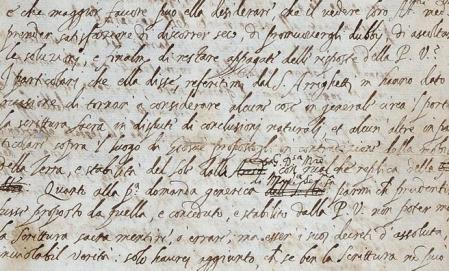 e che maggior favore puo ella desiderare che il vedere loro
prender satisfazione di discorrer seco, di promuovergli dubbi, di ascoltar
le soluzioni, e finalm. di restare appagati delle risposte della P. V.
I particolari, che ella disse, referitimi dal S. Arrighetti, m hanno dato
occasione di tornar a considerare alcune cose in generale circa 'l portar
la scrittura sacra in dispute di conclusioni naturali, et alcun altre in par
ticolari sopra 'l luogo di Giosue propostoli, in contradizione della
della Terra, e stabilità del sole dalla che replica della
Quanto alla domanda generica parmi che prudentis
fusse proposto da quella, e conceduto, e stabilito dalla P. V. non poter mai
la scrittura sacra mentire, o errare, ma esser i suoi decreti d'assoluta,
inviolabil verità: solo haurei aggiunto, che se ben la scrittura non può